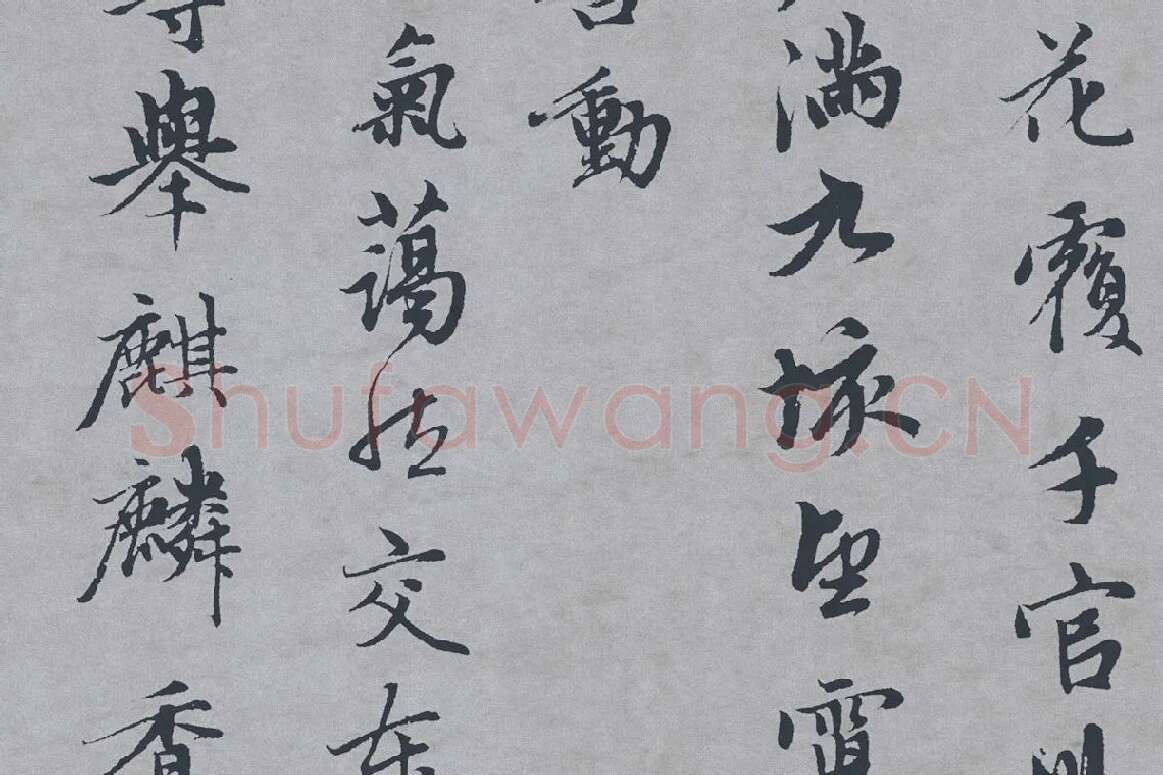 花覆千官
滿九垓望霄
動
氣藹
交
舉麒麟香
Shufawang.CN